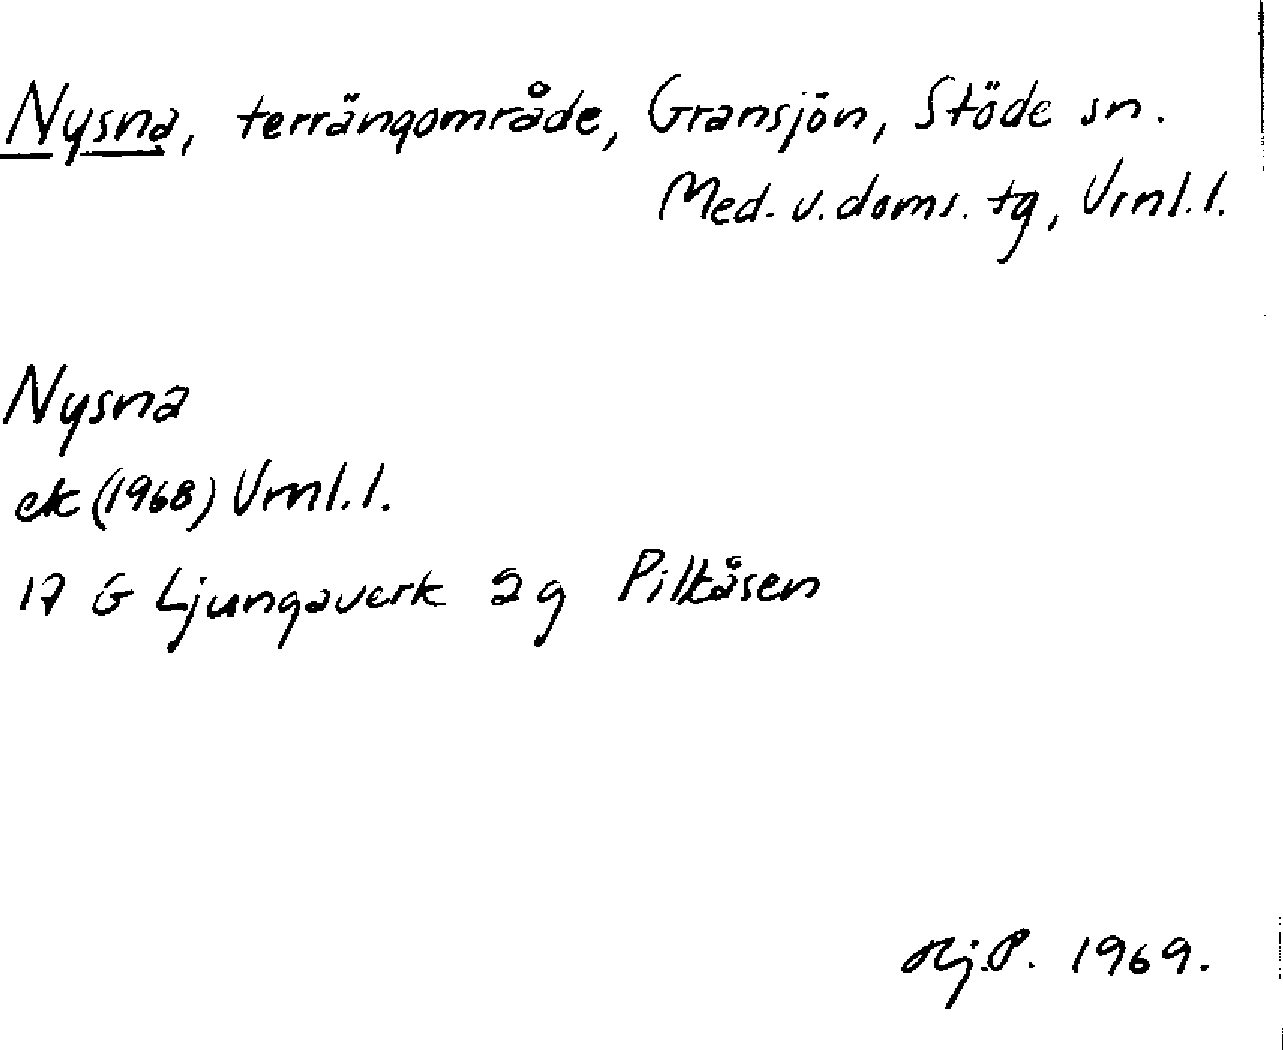 Nysna, terrängområde, Gransjön, Stöde sn.
Med. v. doms. tg, Vrnl. l.
Nysna
ek (1968) Vrnl. l.
17 G Ljungaverk 2 g Pilkåsen
Hj.P. 1969.